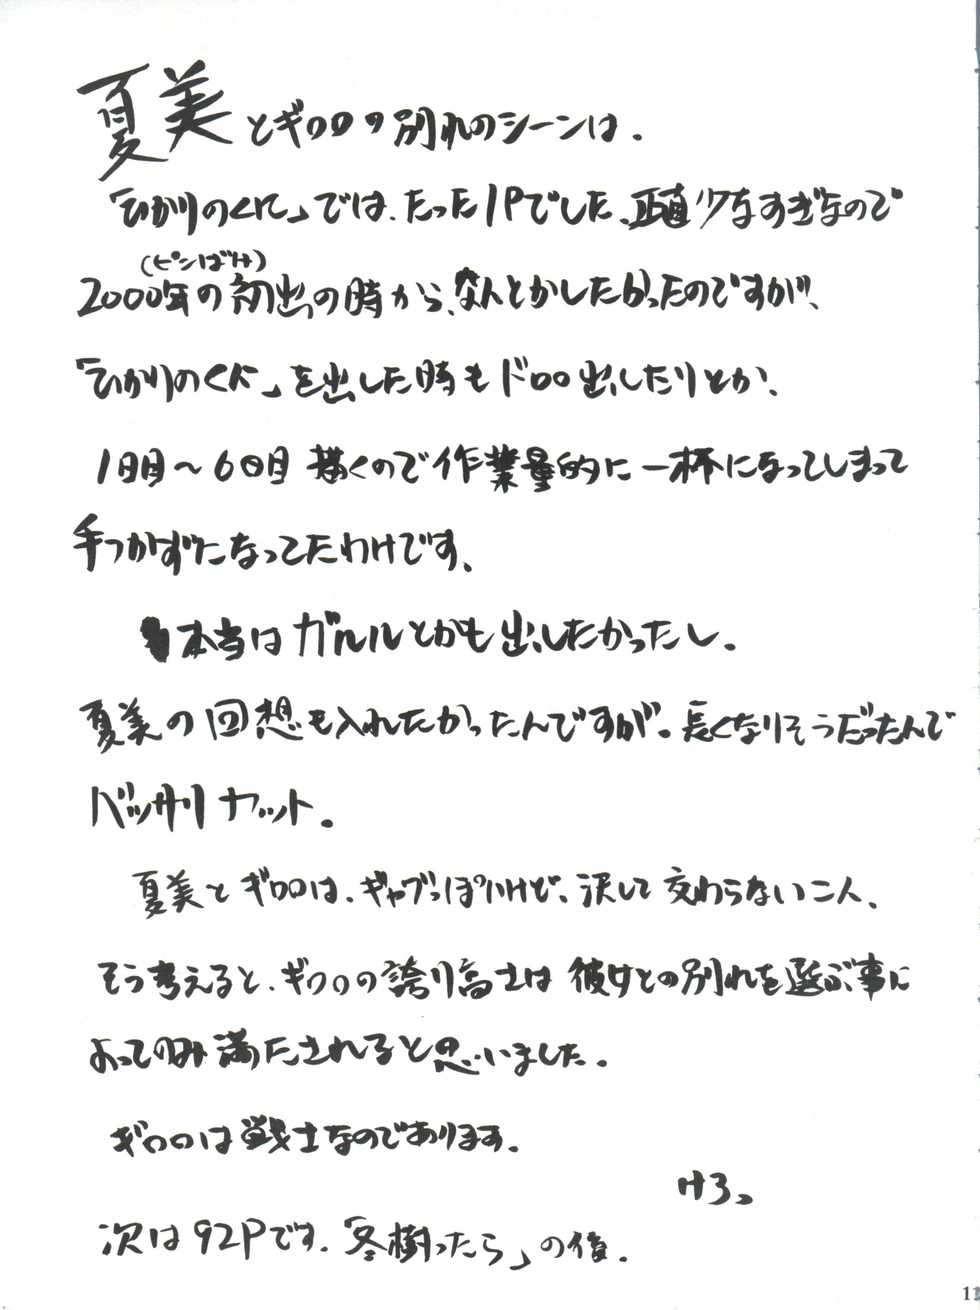 夏美とギロロの別れのシーンは、
「ひかりのくに」では、たった1Pでした、正直少なすぎなので
(ピンばけ)
2000年の初出の時から、なんとかしたかったのですが、
「ひかりのくに」を出した時もドロロ出したりとか、
1日目〜6日目描くので作業量的に一杯になってしまって
手つかずになってたわけです。
本当はガルルとかも出したかったし、
夏美の回想も入れたかったんですが、長くなりそうだったんで
バッサリカット。
夏美とギロロは、ギャグっぽいけど、決して交わらない二人、
そう考えると、ギロロの誇り高さは彼女との別れを選ぶ事に
よってのみ満たされると思いました。
ギロロは戦士なのであります。
けろっ
次は92Pです。「冬樹ったら」の後。
11